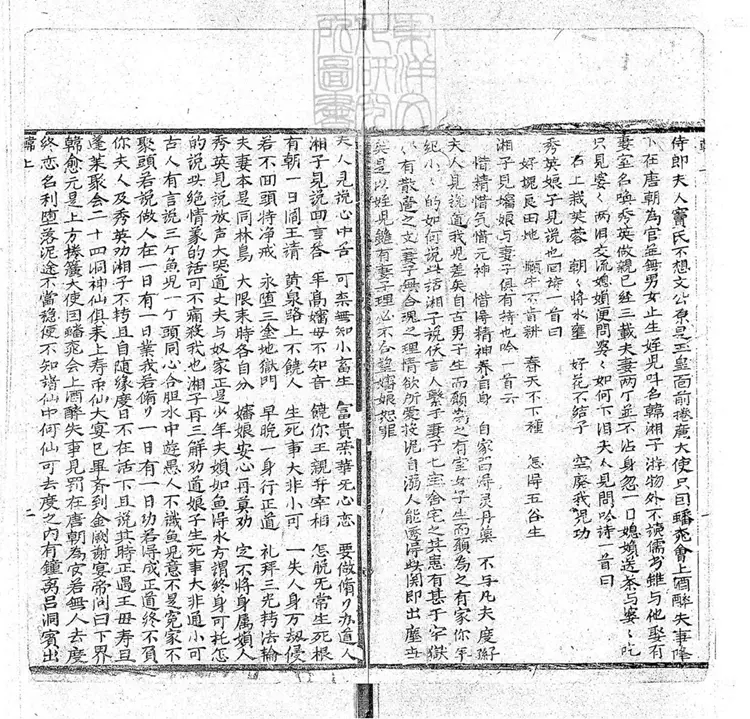 侍郎夫人竇氏不想文公原是玉皇面前捲廉大使只因蟠桃會上酒醉失事降
在唐朝為官並無男女止生姪兒叫名韓湘子游物外不讀儒書雖与他娶有
妻室名喚秀英做親已經三載夫妻両个並不沾身忽一日媳婦送茶与婆〻吃
只見婆〻両泪交流媳婦便問婆〻如何下泪夫人見問吟詩一首曰
石上栽芙蓉 朝〻将水壅 好花不結子 空廢我児功
秀英娘子見說也回詩一首曰
好塊良田地 願牛不肯耕 春天不下種 怎得五谷生
湘子見嬸娘与妻子俱有詩也吟一首云
惜精惜气惜元神 惜得精神养自身 自家西得灵丹藥 不与凡夫度子孫
夫人見說道我児差矣自古男子生而願為之有室女子生而願為之有家你年
紀小〻的如何說此話湘子說佚言人繫于妻子七宝舍宅之其患有甚于牢獄
有散

之文妻子無合魂之理情欲所愛投泥自溺人能透得此関即出塵世
矣是以姪児雖有妻子理心不合望嬸娘恕罪
夫人見說心中苦 可柰無知小畜生 富貴荣華死心恋 要做脩行办道人
湘子見說回言荅 年高嬸母不知音 饒你王親并宰相 怎脱无常生死根
有朝一日閻王请 黄泉路上不饒人 生死事大非小可 一失人身万劫侵
若不回頭持净戒 永墮三塗地獄門 早晚一身行正道 礼拜三光转法輪
夫妻本是同林鳥 大限来時各自分 嬸娘安心再莫劝 定不將身属婦人
秀英見說放声大哭道丈夫与奴家正是少年夫婦如魚得水方謂終身可托怎
的說此絶情義的話可不痛殺我也湘子再三解劝道娘子生死事大非通小可
古人有言說三个魚児一个頭同心合胆水中遊愚人不識魚児意不是冤家不
聚頭若說做人在一日有一日業我若脩行一日有一日功若得成正道終不負
你夫人及秀英劝湘子不转且自随緣度日不在活下且說其時正遇王母寿旦
蓬莱聚会二十四洞神仙俱来上寿帀仙大宴已畢斉到金阙謝宴帝问曰下界
韓愈元是上方捲廉大使因蟠桃会上酒醉失事見罰在唐朝為官若無人去度
終恋名利墮落泥途不當穏便不知諸仙中何仙可去度之内有鍾离吕洞賓出
韓上